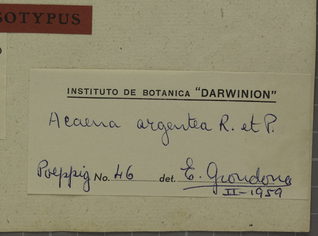 SOTYPUS
INSTITUTO DE BOTANICA "DARWINION"
Acaena argentea R. et P.
Poeppig No. 46 det. E. Grondona
II-1959